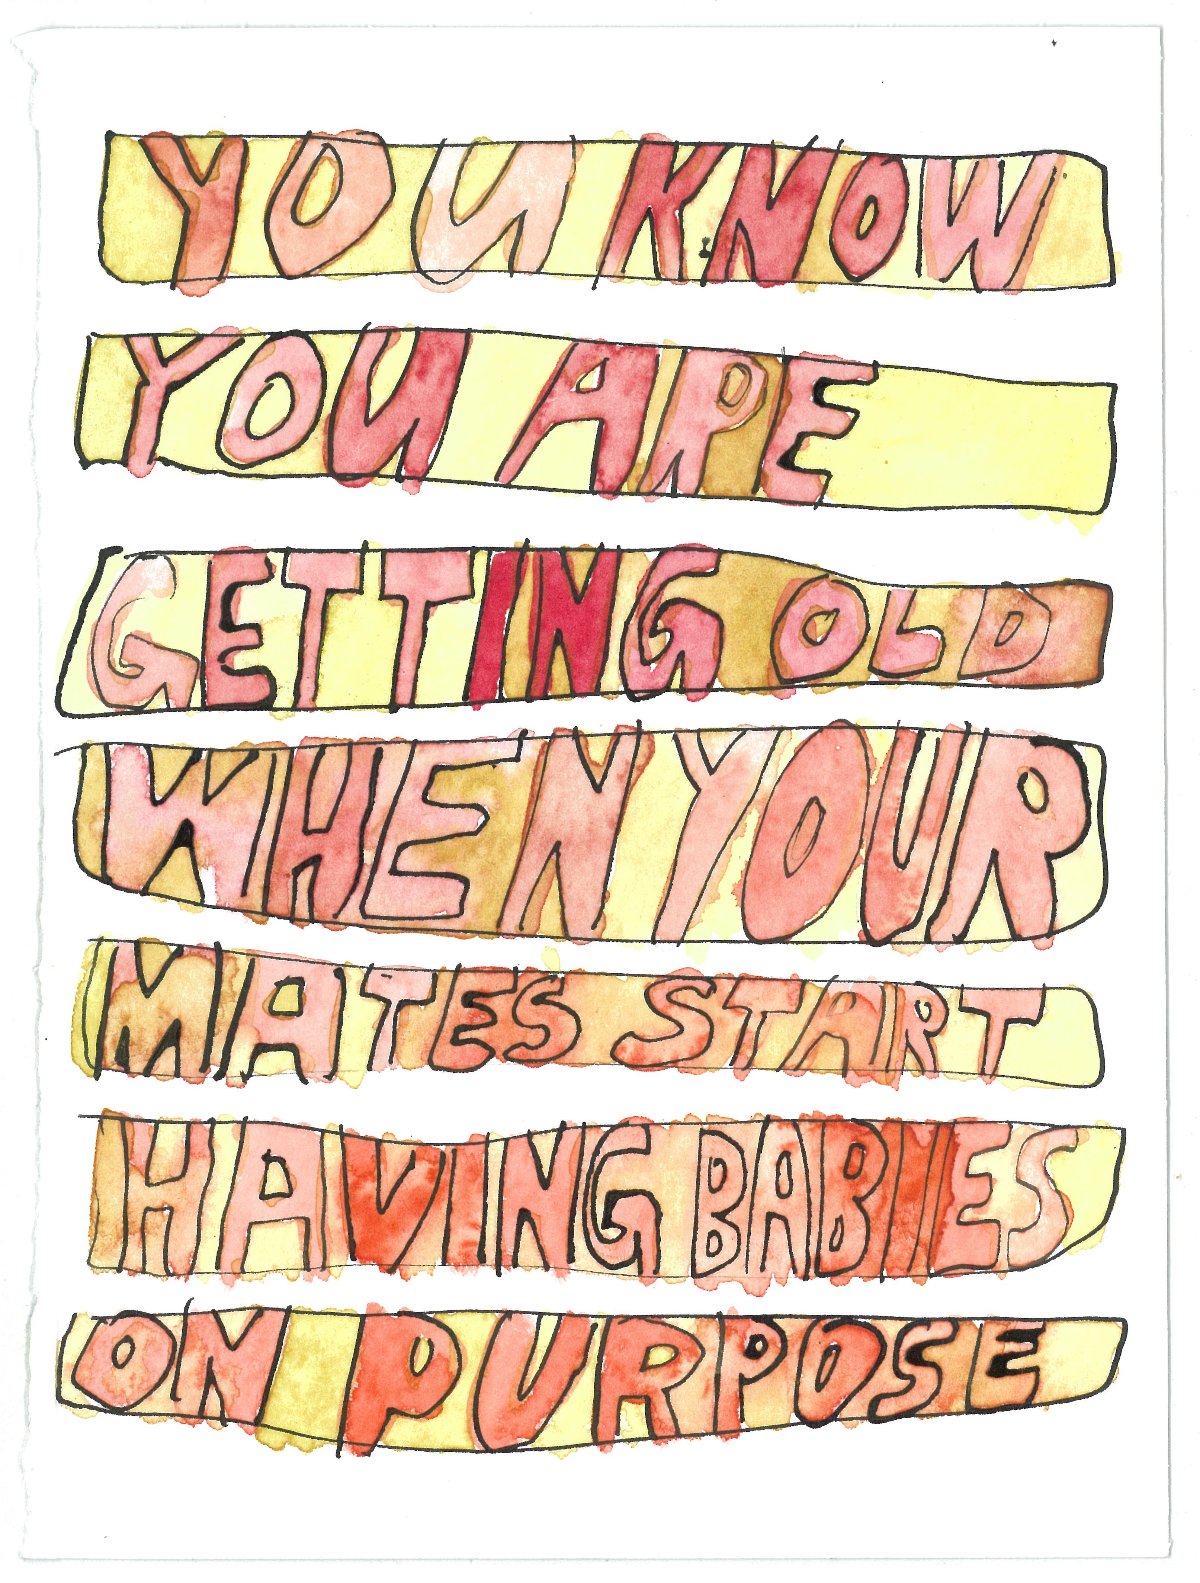 YOU KNOW
YOU ARE
GETTING OLD
WHEN YOUR
MATES START
HAVING BABIES
ON PURPOSE